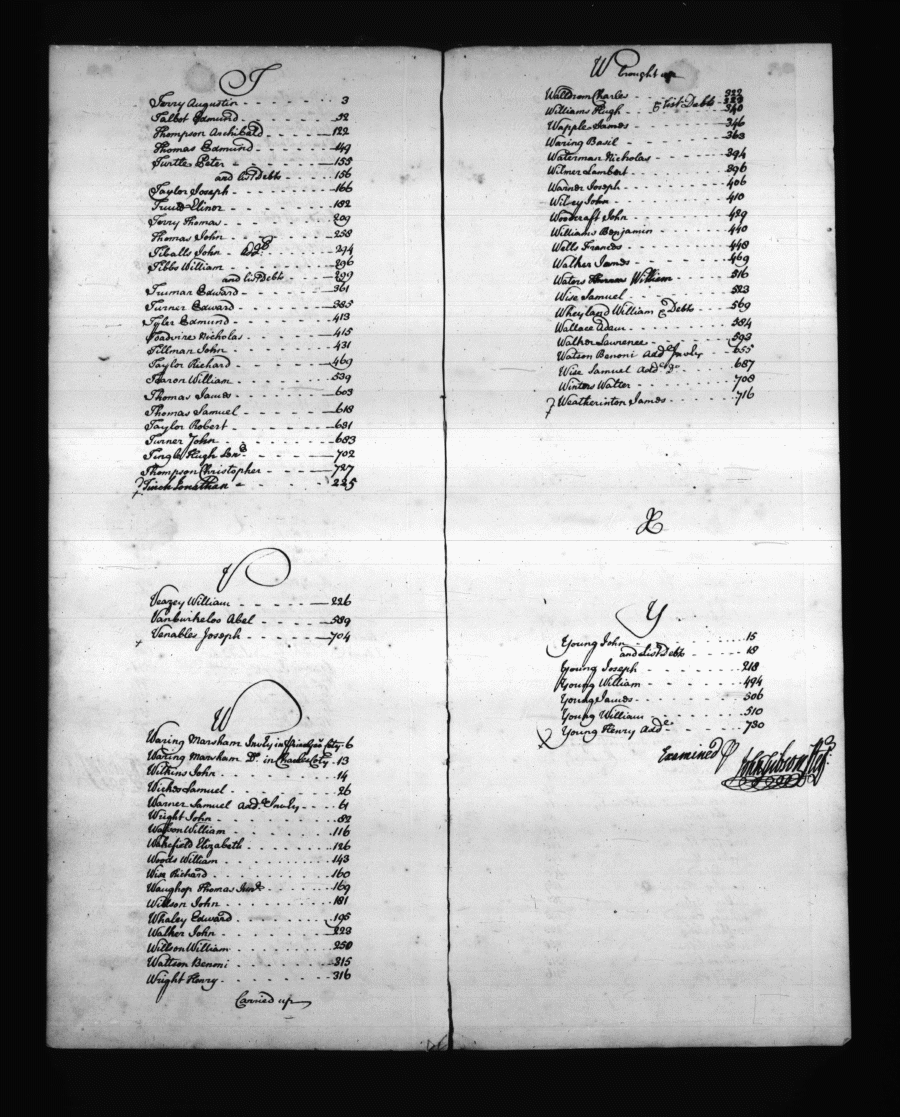 T
Terry Augustin 3
Talbot Edmund 52
Thompson Archibald 122
Thomas Edmund 149
Turtle Peter 155
and List Debts 156
Taylor Joseph 166
Elinor 182
Terry Thomas 209
Thomas John 258
Tibalts John 294
Tibbs William 296
and List Debts 299
Truman Edward 361
Turner Edward 385
Tyler Edmund 413
Toadvine Nicholas 415
Tillman John 431
Taylor Richard 469
Tearon William 539
Thomas James 603
Thomas Samuel 618
Taylor Robert 681
Turner John 683
Tingle Hugh Senr. 702
Thompson Christopher 727
Jonathan 225
V
Veazey William 226
Vanburkeloo Abel 589
Venables Joseph 704
W
Waring Marsham Invty in Prince Geos. Coty. 6
Waring Marsham Do. in Charles Coty. 13
Wilkins John 14
Wickes Samuel 26
Warner Samuel add. Invty 61
Wright John 82
Watson William 116
Wakefield Elizabeth 126
Woods William 143
Wise Richard 160
Waughop Thomas Junr. 169
Willson John 181
Whaley Edward 195
Walker John 223
Willson William 250
Wattson Benoni 315
Wright Henry 316
Carried up
W brought up
Walldrom Charles 322
Williams Hugh & List Debts 340
Wapple James 346
Waring Basil 363
Waterman Nicholas 394
Wilmer Lambert 396
Warner Joseph 406
Wilsey John 410
Woodcraft John 429
Williams Benjamin 440
Wells Frances 448
Walker James 469
Waters William 516
Wise Samuel 523
Wheyland William & Debts 569
Wallace Adam 584
Walker Lawrence 593
Watson Benoni Add. Invty 655
Wise Samuel Add. 687
Winters Walter 708
Weatherinton James 716
X
Y
Young John 15
and List Debts 19
Young Joseph 218
Young William 494
Young James 506
Young William 510
Young Henry Add. 730
Examined
John Gibson